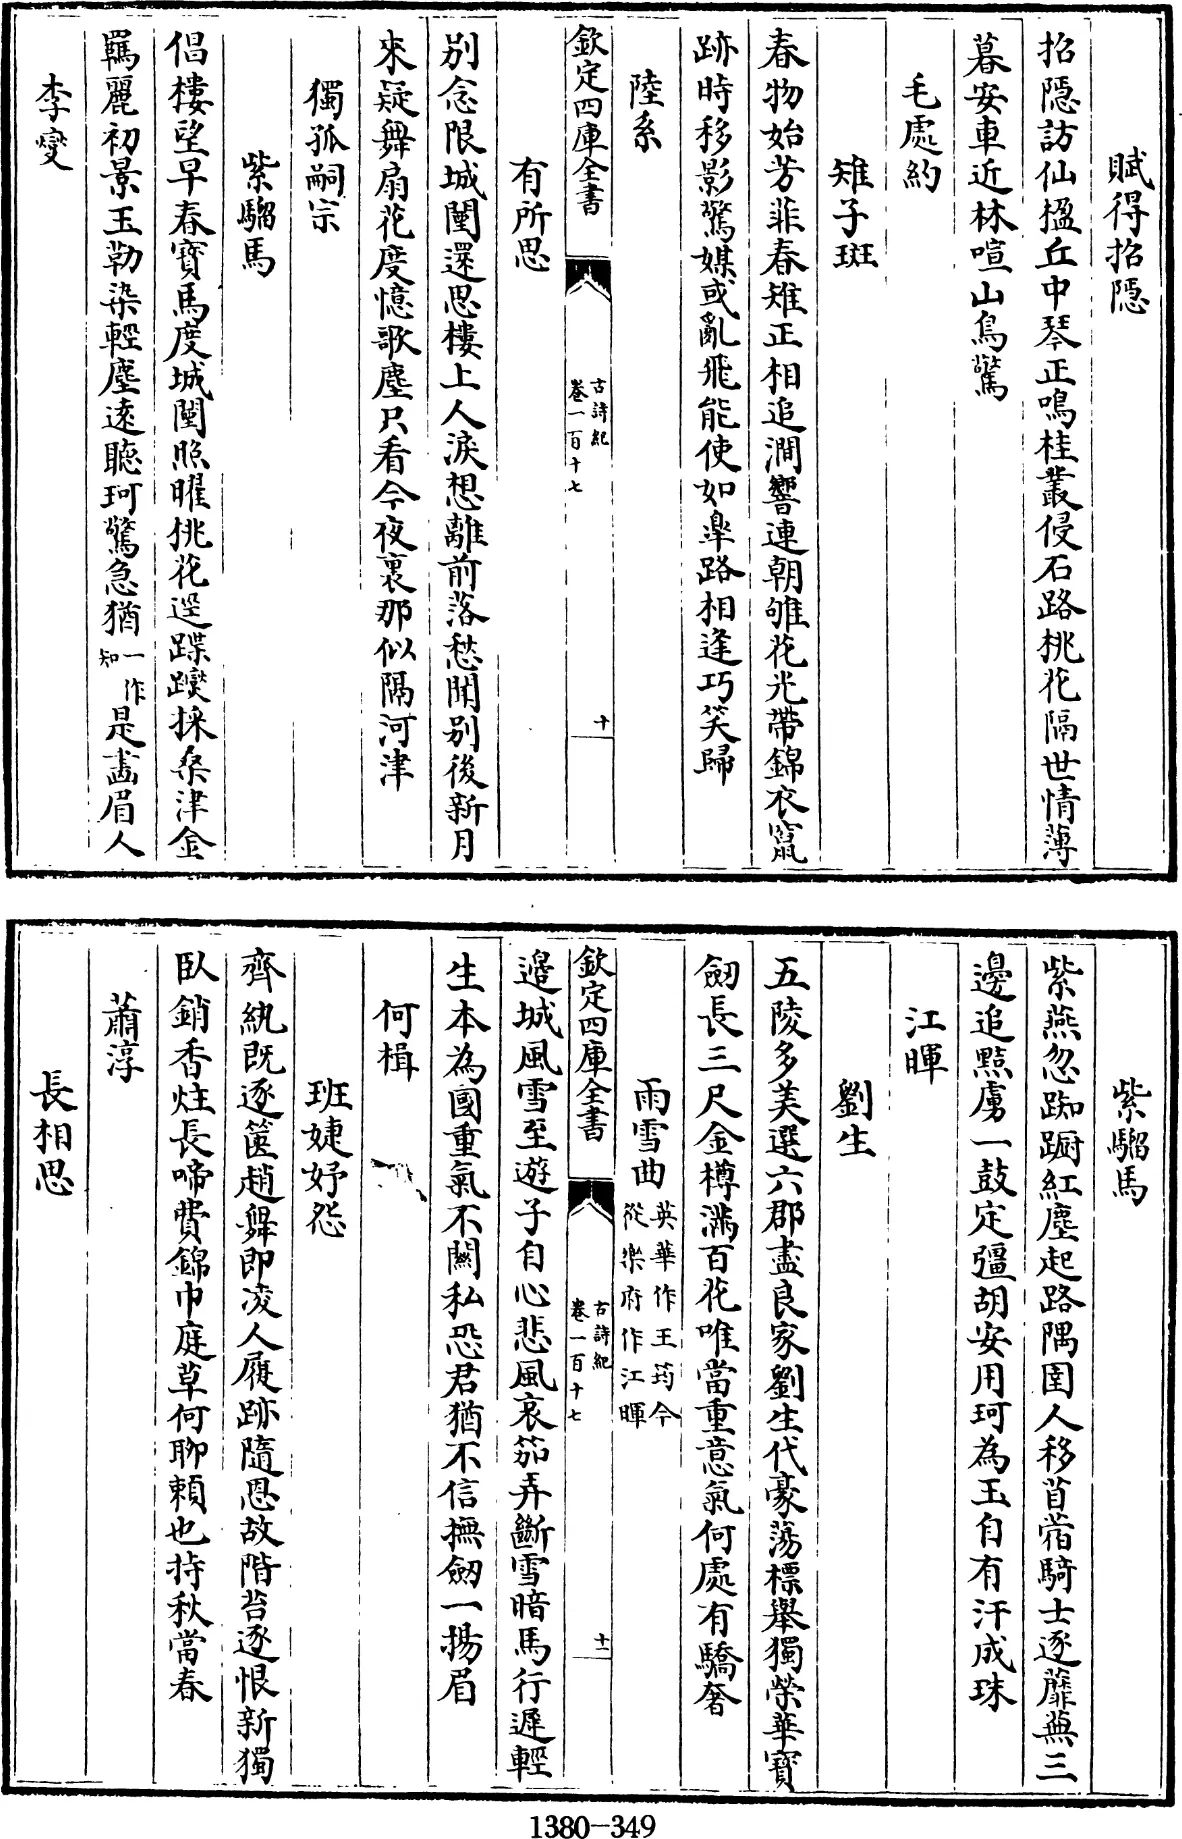 賦得招隱
招隱訪仙楹丘中琴正鳴桂叢侵石路桃花隔世情薄
暮安車近林喧山鳥驚
毛處約
雉子斑
春物始芳菲春雉正相追澗響連朝雊花光帶錦衣竄
跡時移影驚媒或亂飛能使如臯路相逢巧笑歸
陸系
欽定四庫全書
古詩紀
卷一百十七
十
有所思
別念限城闉還思樓上人淚想離前落愁聞別後新月
來疑舞扇花度憶歌塵只看今夜裏那似隔河津
獨孤嗣宗
紫騮馬
倡樓望早春寶馬度城闉照曜桃花逕蹀躞採桑津金
羈麗初景玉勒染輕塵遠聽珂驚急猶一作知是畫眉人
李燮
紫騮馬
紫燕忽踟躕紅塵起路隅圉人移苜蓿騎士逐蘼蕪三
邊追黠虜一鼓定彊胡安用珂為玉自有汗成珠
江暉
劉生
五陵多美選六郡盡良家劉生代豪蕩標舉獨榮華寶
劒長三尺金樽滿百花唯當重意氣何處有驕奢
雨雪曲英華作王筠今從樂府作江暉
欽定四庫全書
古詩紀
卷一百十七
十一
邊城風雪至遊子自心悲風哀笳弄斷雪暗馬行遲輕
生本為國重氣不關私恐君猶不信撫劒一揚眉
何楫
班婕妤怨
齊紈既逐篋趙舞即凌人履跡隨恩故階苔逐恨新獨
臥銷香炷長啼費錦巾庭草何聊賴也持秋當春
蕭淳
長相思
1380-349